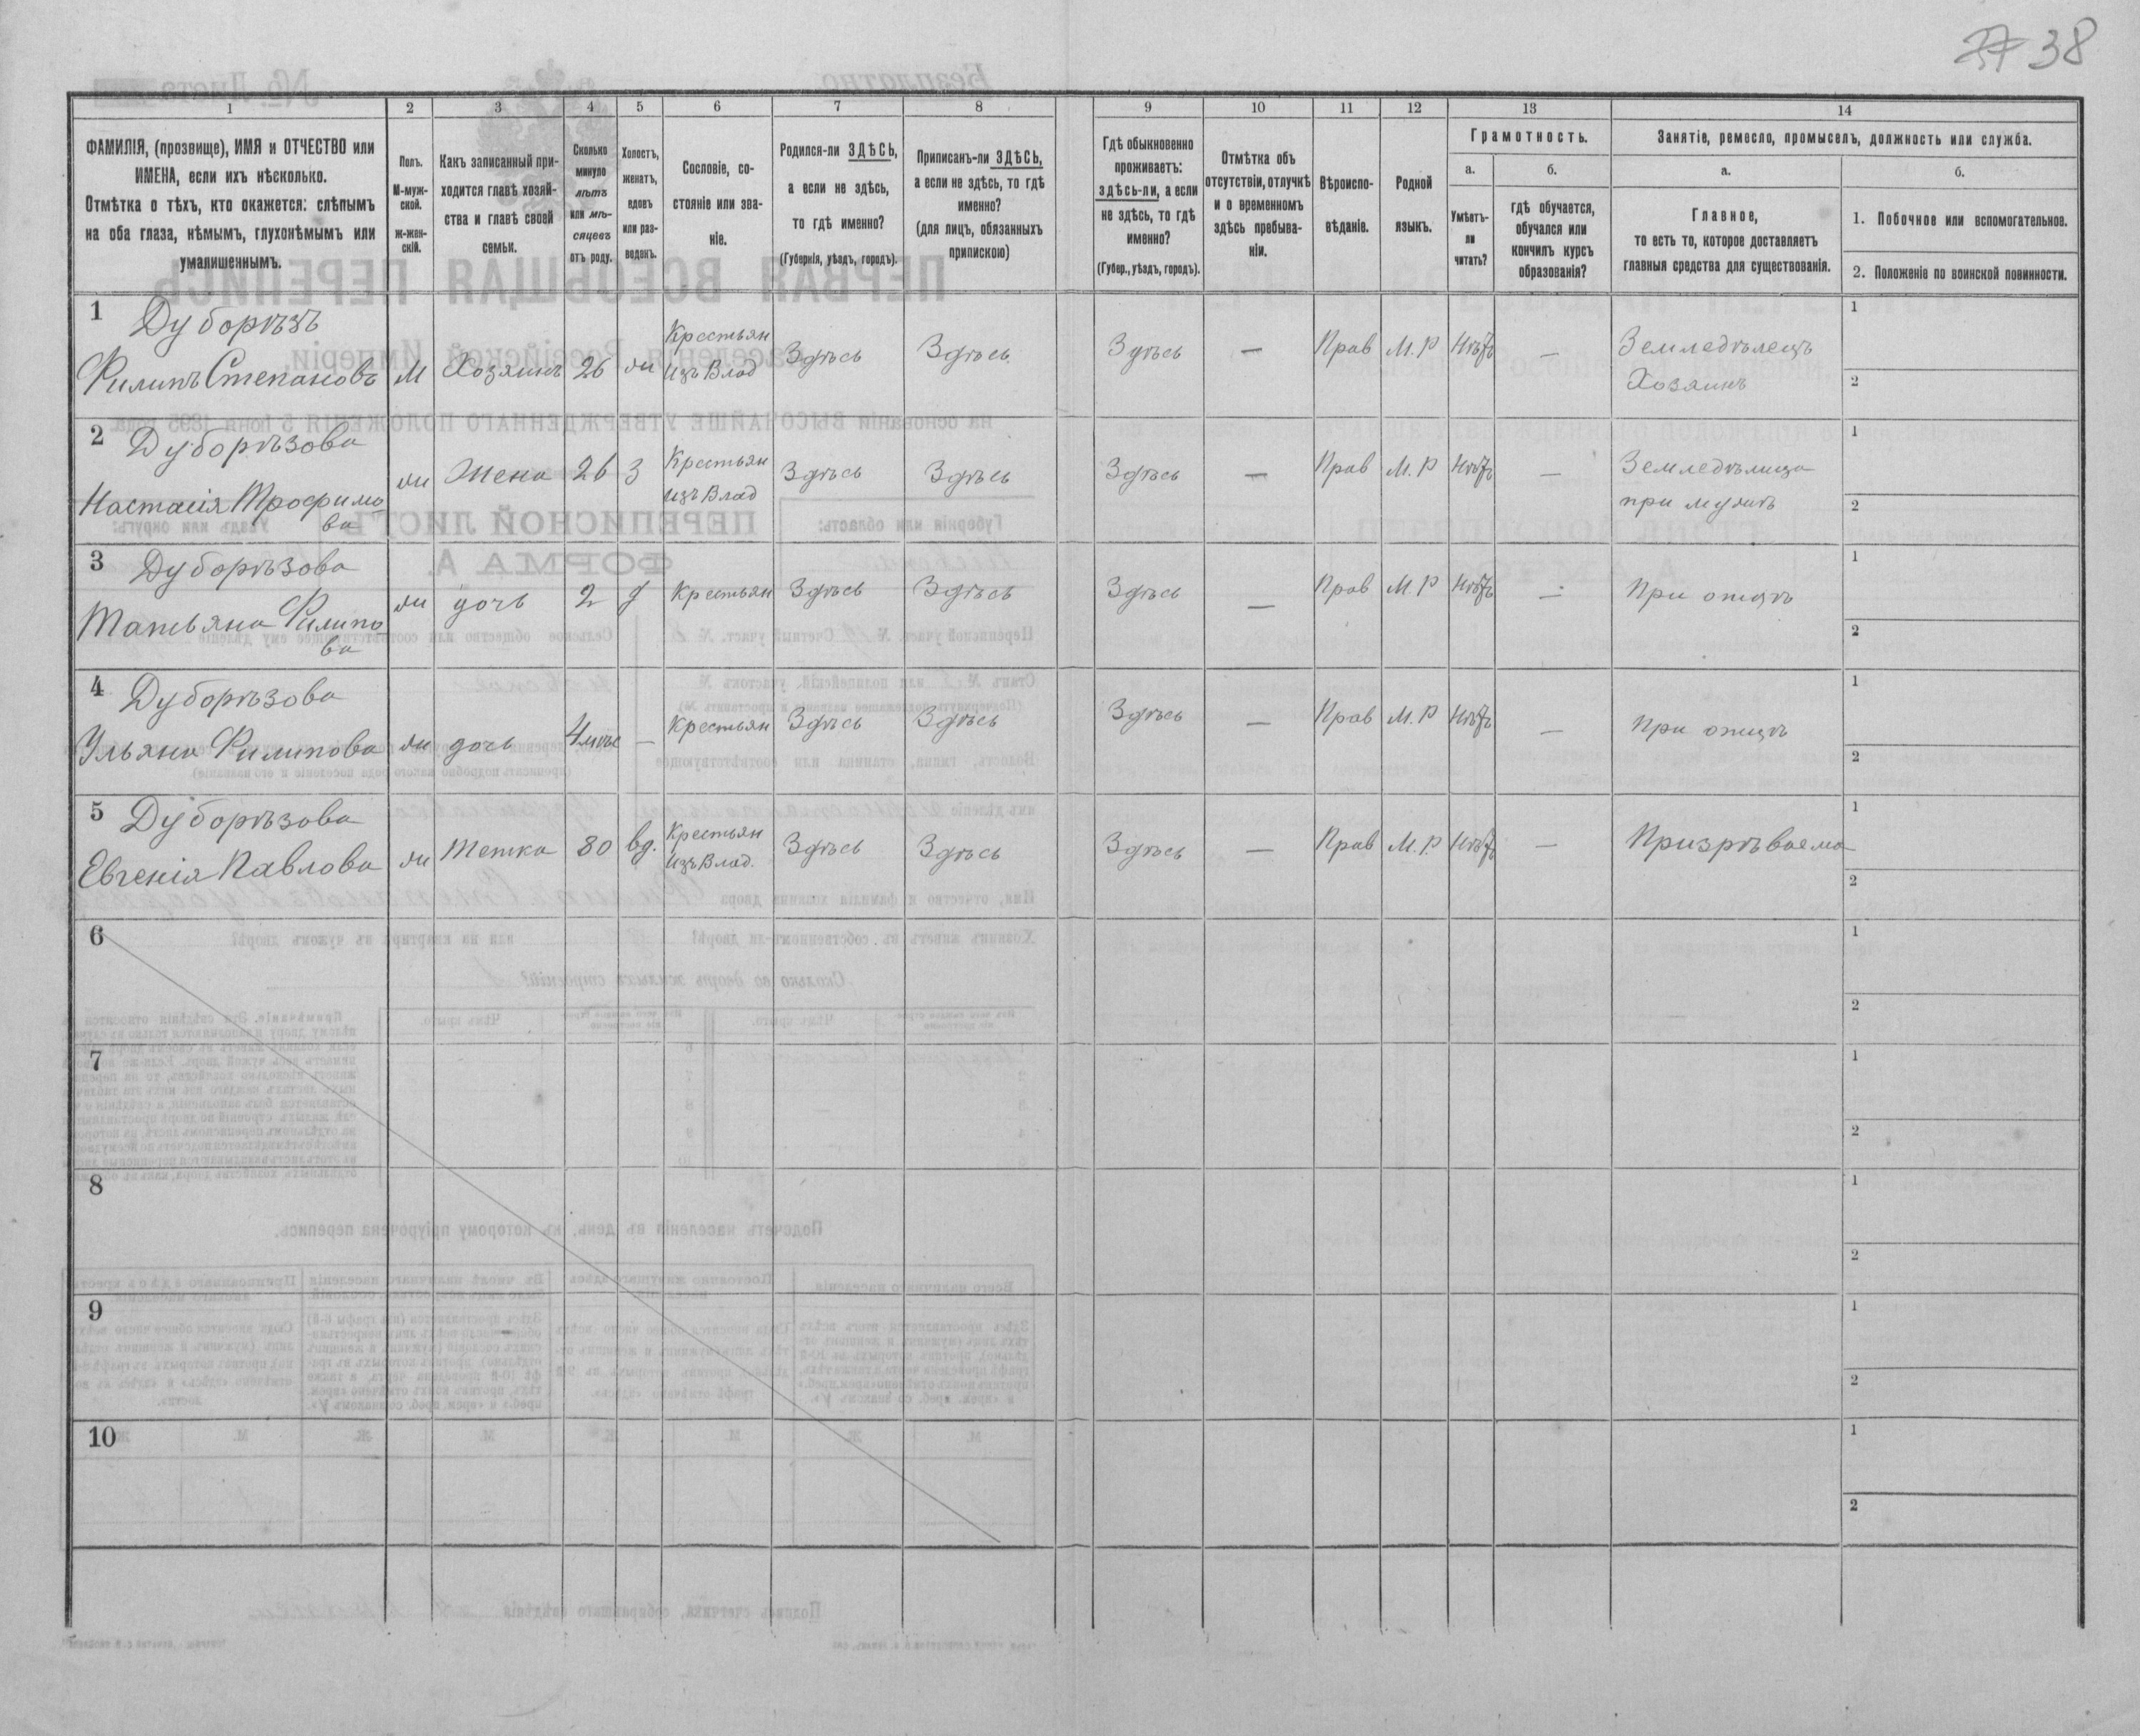 37 38
1
2
3
4
5
6
7
8
9
10
11
12
13
14
ФАМИЛІЯ, (прозвище), ИМЯ и ОТЧЕСТВО или
ИМЕНА, если ихъ нѣсколько.
Отмѣтка о тѣхъ, кто окажется: слѣпымъ
на оба глаза, нѣмымъ, глухонѣмымъ или
умалишеннымъ.
Полъ.
М-муж-
ской.
ж-жен-
скій.
Какъ записанный при-
ходится главѣ хозяй-
ства и главѣ своей
семьи.
Сколько
минуло
лѣтъ
или мѣ-
сяцевъ
отъ роду.
Холостъ,
женатъ,
вдовъ
или раз-
веденъ.
Сословіе, со-
стояніе или зва-
ніе.
Родился-ли ЗДѢСЬ,
а если не здѣсь,
то гдѣ именно?
(Губернія, уѣздъ, городъ).
Приписанъ-ли ЗДѢСЬ,
а если не здѣсь, то гдѣ
именно?
(для лицъ, обязанныхъ
припискою)
Гдѣ обыкновенно
проживаетъ:
здѣсь-ли, а если
не здѣсь, то гдѣ
именно?
(Губер., уѣздъ, городъ).
Отмѣтка объ
отсутствіи, отлучкѣ
и о временномъ
здѣсь пребыва-
ніи.
Вѣроиспо-
вѣданіе.
Родной
языкъ.
Грамотность.
а.
Умѣетъ-
ли
читать?
б.
гдѣ обучается,
обучался или
кончилъ курсъ
образованія?
Занятіе, ремесло, промыселъ, должность или служба.
а.
Главное,
то есть то, которое доставляетъ
главныя средства для существованія.
б.
1. Побочное или вспомогательное.
2. Положеніе по воинской повинности.
1 Дуборѣзъ
Филипъ Степановъ
М
Хозяинъ
26
ж
Крестьян
изъ Влад
Здѣсь
Здѣсь
Здѣсь
—
Прав
М. Р
Нѣтъ
—
Земледѣлецъ
Хозяинъ
1
2
2 Дуборѣзова
Настасія Трофимо
ва
ж
Жена
26
З
Крестьян
изъ Влад
Здѣсь
Здѣсь
Здѣсь
—
Прав
М. Р
Нѣтъ
—
Земледѣлица
при мужѣ
1
2
3 Дуборѣзова
Татьяна Филипо
ва
ж
дочь
2
д
Крестьян
Здѣсь
Здѣсь
Здѣсь
—
Прав
М. Р
Нѣтъ
—
При отцѣ
1
2
4 Дуборѣзова
Ульяна Филипова
ж
дочь
4 мѣс
—
Крестьян
Здѣсь
Здѣсь
Здѣсь
—
Прав
М. Р
Нѣтъ
—
При отцѣ
1
2
5 Дуборѣзова
Евгенія Павлова
ж
Тетка
80
вд.
Крестьян
изъ Влад.
Здѣсь
Здѣсь
Здѣсь
—
Прав
М. Р
Нѣтъ
—
Призрѣваема
1
2
6
1
2
7
1
2
8
1
2
9
1
2
10
1
2